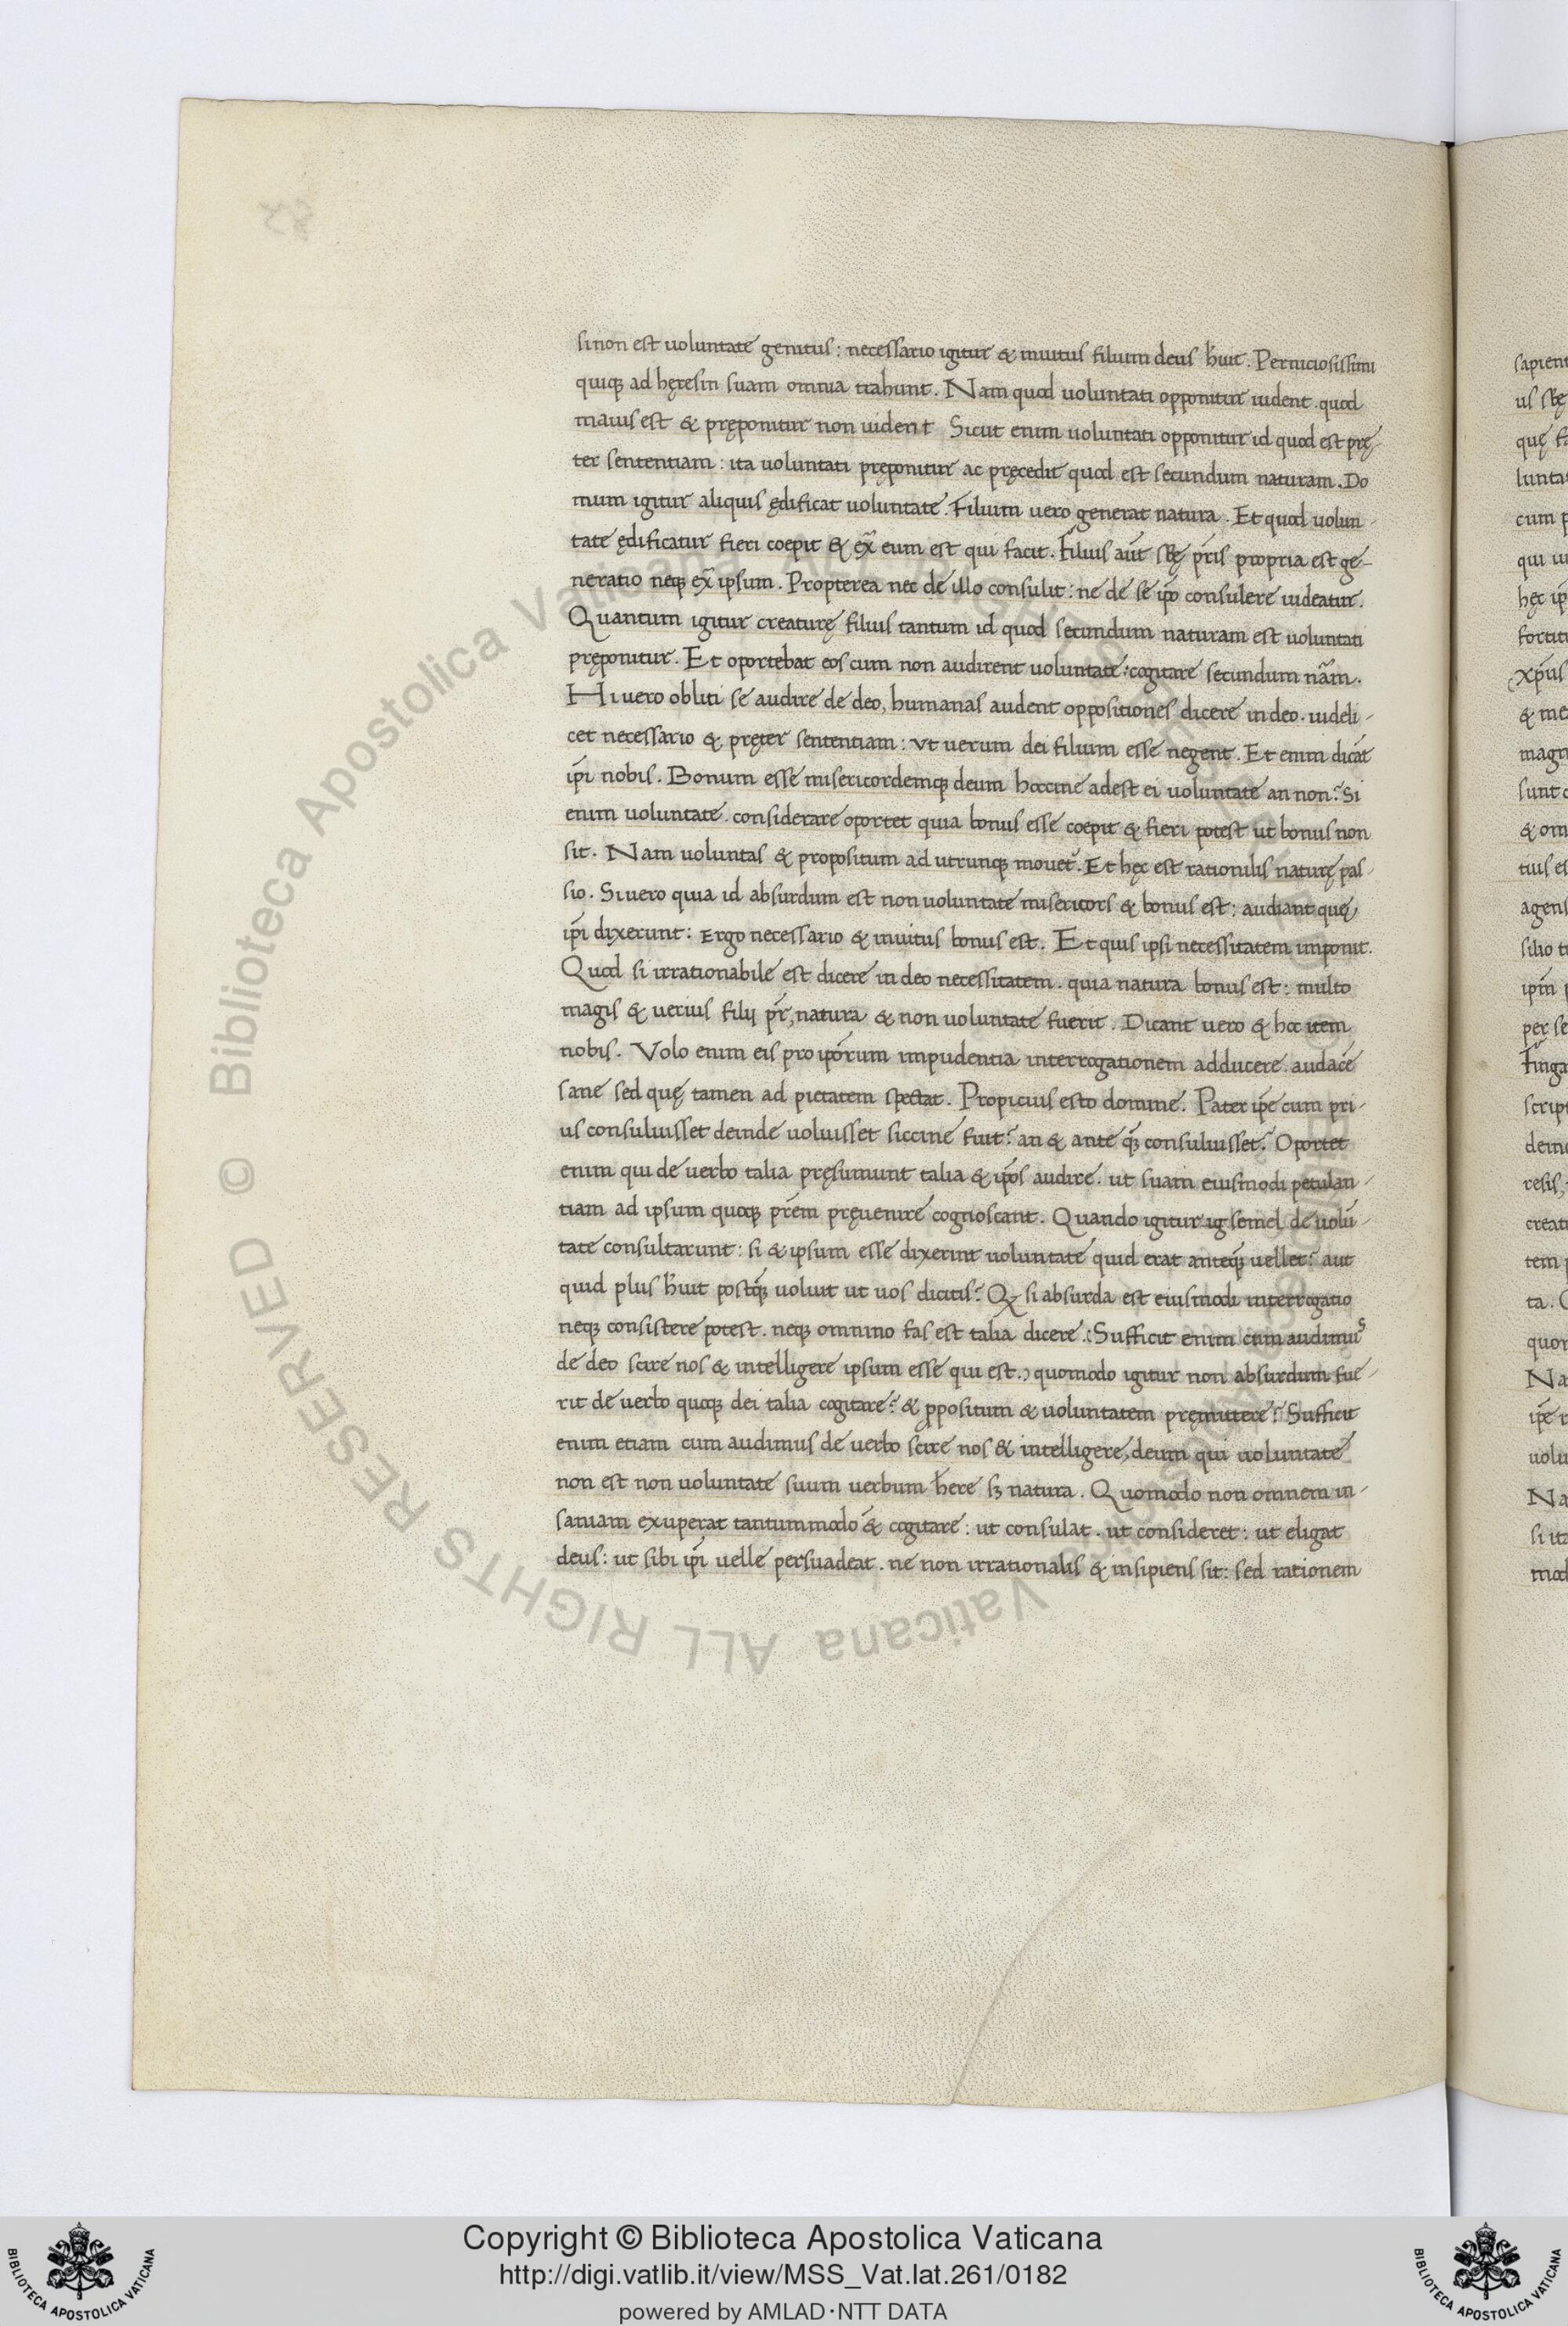 si non est uoluntate genitus: necessario igitur & inuitus filium deus h̄uit. Perniciosissimi
quiqꝫ ad hęresin suam omnia trahunt. Nam quod uoluntati opponitur uident. quod
maius est & pręponitur non uident Sicut enim uoluntati opponitur id quod est prę-
ter sententiam: ita uoluntati pręponitur ac pręcedit quod est secundum naturam. Do
mum igitur aliquis ędificat uoluntate. Filium uero generat natura. Et quod uolun-
tate ędificatur fieri coepit & ex̄ eum est qui facit. Filius aūt sbę pr̄is propria est ge-
neratio neqꝫ ex̄ ipsum. Propterea nec de illo consulit: ne de se ip̄o consulere uideatur.
Quantum igitur creaturę filius tantum id quod secundum naturam est uoluntati
pręponitur. Et oportebat eos cum non audirent uoluntate: cogitare secundum nām.
Hi uero obliti se audire de deo, humanas audent oppositiones dicere in deo. uideli-
cet necessario & pręter sententiam: vt uerum dei filium esse negent. Et enim dicāt
ip̄i nobis. Bonum esse misericordemqꝫ deum hoccine adest ei uoluntate an non? Si
enim uoluntate. considerare oportet quia bonus esse coepit & fieri potest ut bonus non
sit. Nam uoluntas & propositum ad utrunqꝫ mouet᷑. Et hęc est rationilis naturę pas-
sio. Si uero quia id absurdum est non uoluntate misericors & bonus est: audiant quę
ip̄i dixerunt: Ergo necessario & inuitus bonus est. Et quis ipsi necessitatem imponit.
Quod si irrationabile est dicere in deo necessitatem. quia natura bonus est: multo
magis & uerius filij pr̄, natura & non uoluntate fuerit. Dicant uero & hoc item
nobis. Volo enim eis pro ip̄orum impudentia interrogationem adducere. audace
sane sed quę tamen ad pietatem spectat. Propicius esto domine. Pater ip̄e cum pri-
us consuluisset deinde uoluisset siccine fuit? an & ante qꝫ̄ consuluisset? Oportet
enim qui de uerbo talia pręsumunt talia & ip̄os audire. ut suam eiusmodi petulan-
tiam ad ipsum quoqꝫ pr̄em pręuenire cognoscant. Quando igitur ig semel de uolū-
tate consultarunt: si & ipsum esse dixerint uoluntate quid erat anteqꝫ̄ uellet? aut
quid plus h̄uit postqꝫ̄ uoluit ut uos dicitis? Qꝫ si absurda est eiusmodi interrogatio
neqꝫ consistere potest. neqꝫ omnino fas est talia dicere. (Sufficit enim cum audimus
de deo scire nos & intelligere ipsum esse qui est.) quomodo igitur non absurdum fue-
rit de uerbo quoqꝫ dei talia cogitare? & ꝓpositum & uoluntatem pręmittere? Sufficit
enim etiam cum audimus de uerbo scire nos & intelligere, deum qui uoluntate
non est non uoluntate suum uerbum h̄ere sꝫ natura. Quomodo non omnem in-
saniam exuperat tantummodo & cogitare: ut consulat. ut consideret: ut eligat
deus: ut sibi ip̄i uelle persuadeat. ne non irrationalis & insipiens sit: sed rationem
Copyright © Biblioteca Apostolica Vaticana
http://digi.vatlib.it/view/MSS_Vat.lat.261/0182
powered by AMLAD·NTT DATA